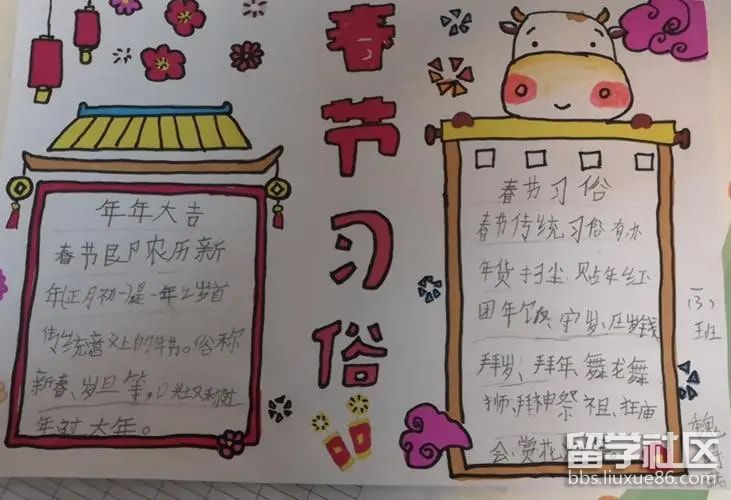 春节习俗
年年大吉
春节即农历新
年(正月初一)是一年之岁首
传统意义上的年节。俗称
新春、岁旦等,口头又称过
年过大年。
春节习俗
春节传统习俗有办
年货、扫尘、贴年红
团年饭、守岁、压岁钱
拜岁、拜年、舞龙舞
狮、拜神祭祖、逛庙
会、赏花
(3)
班
魏
留学社区
bbs.liuxue86.com